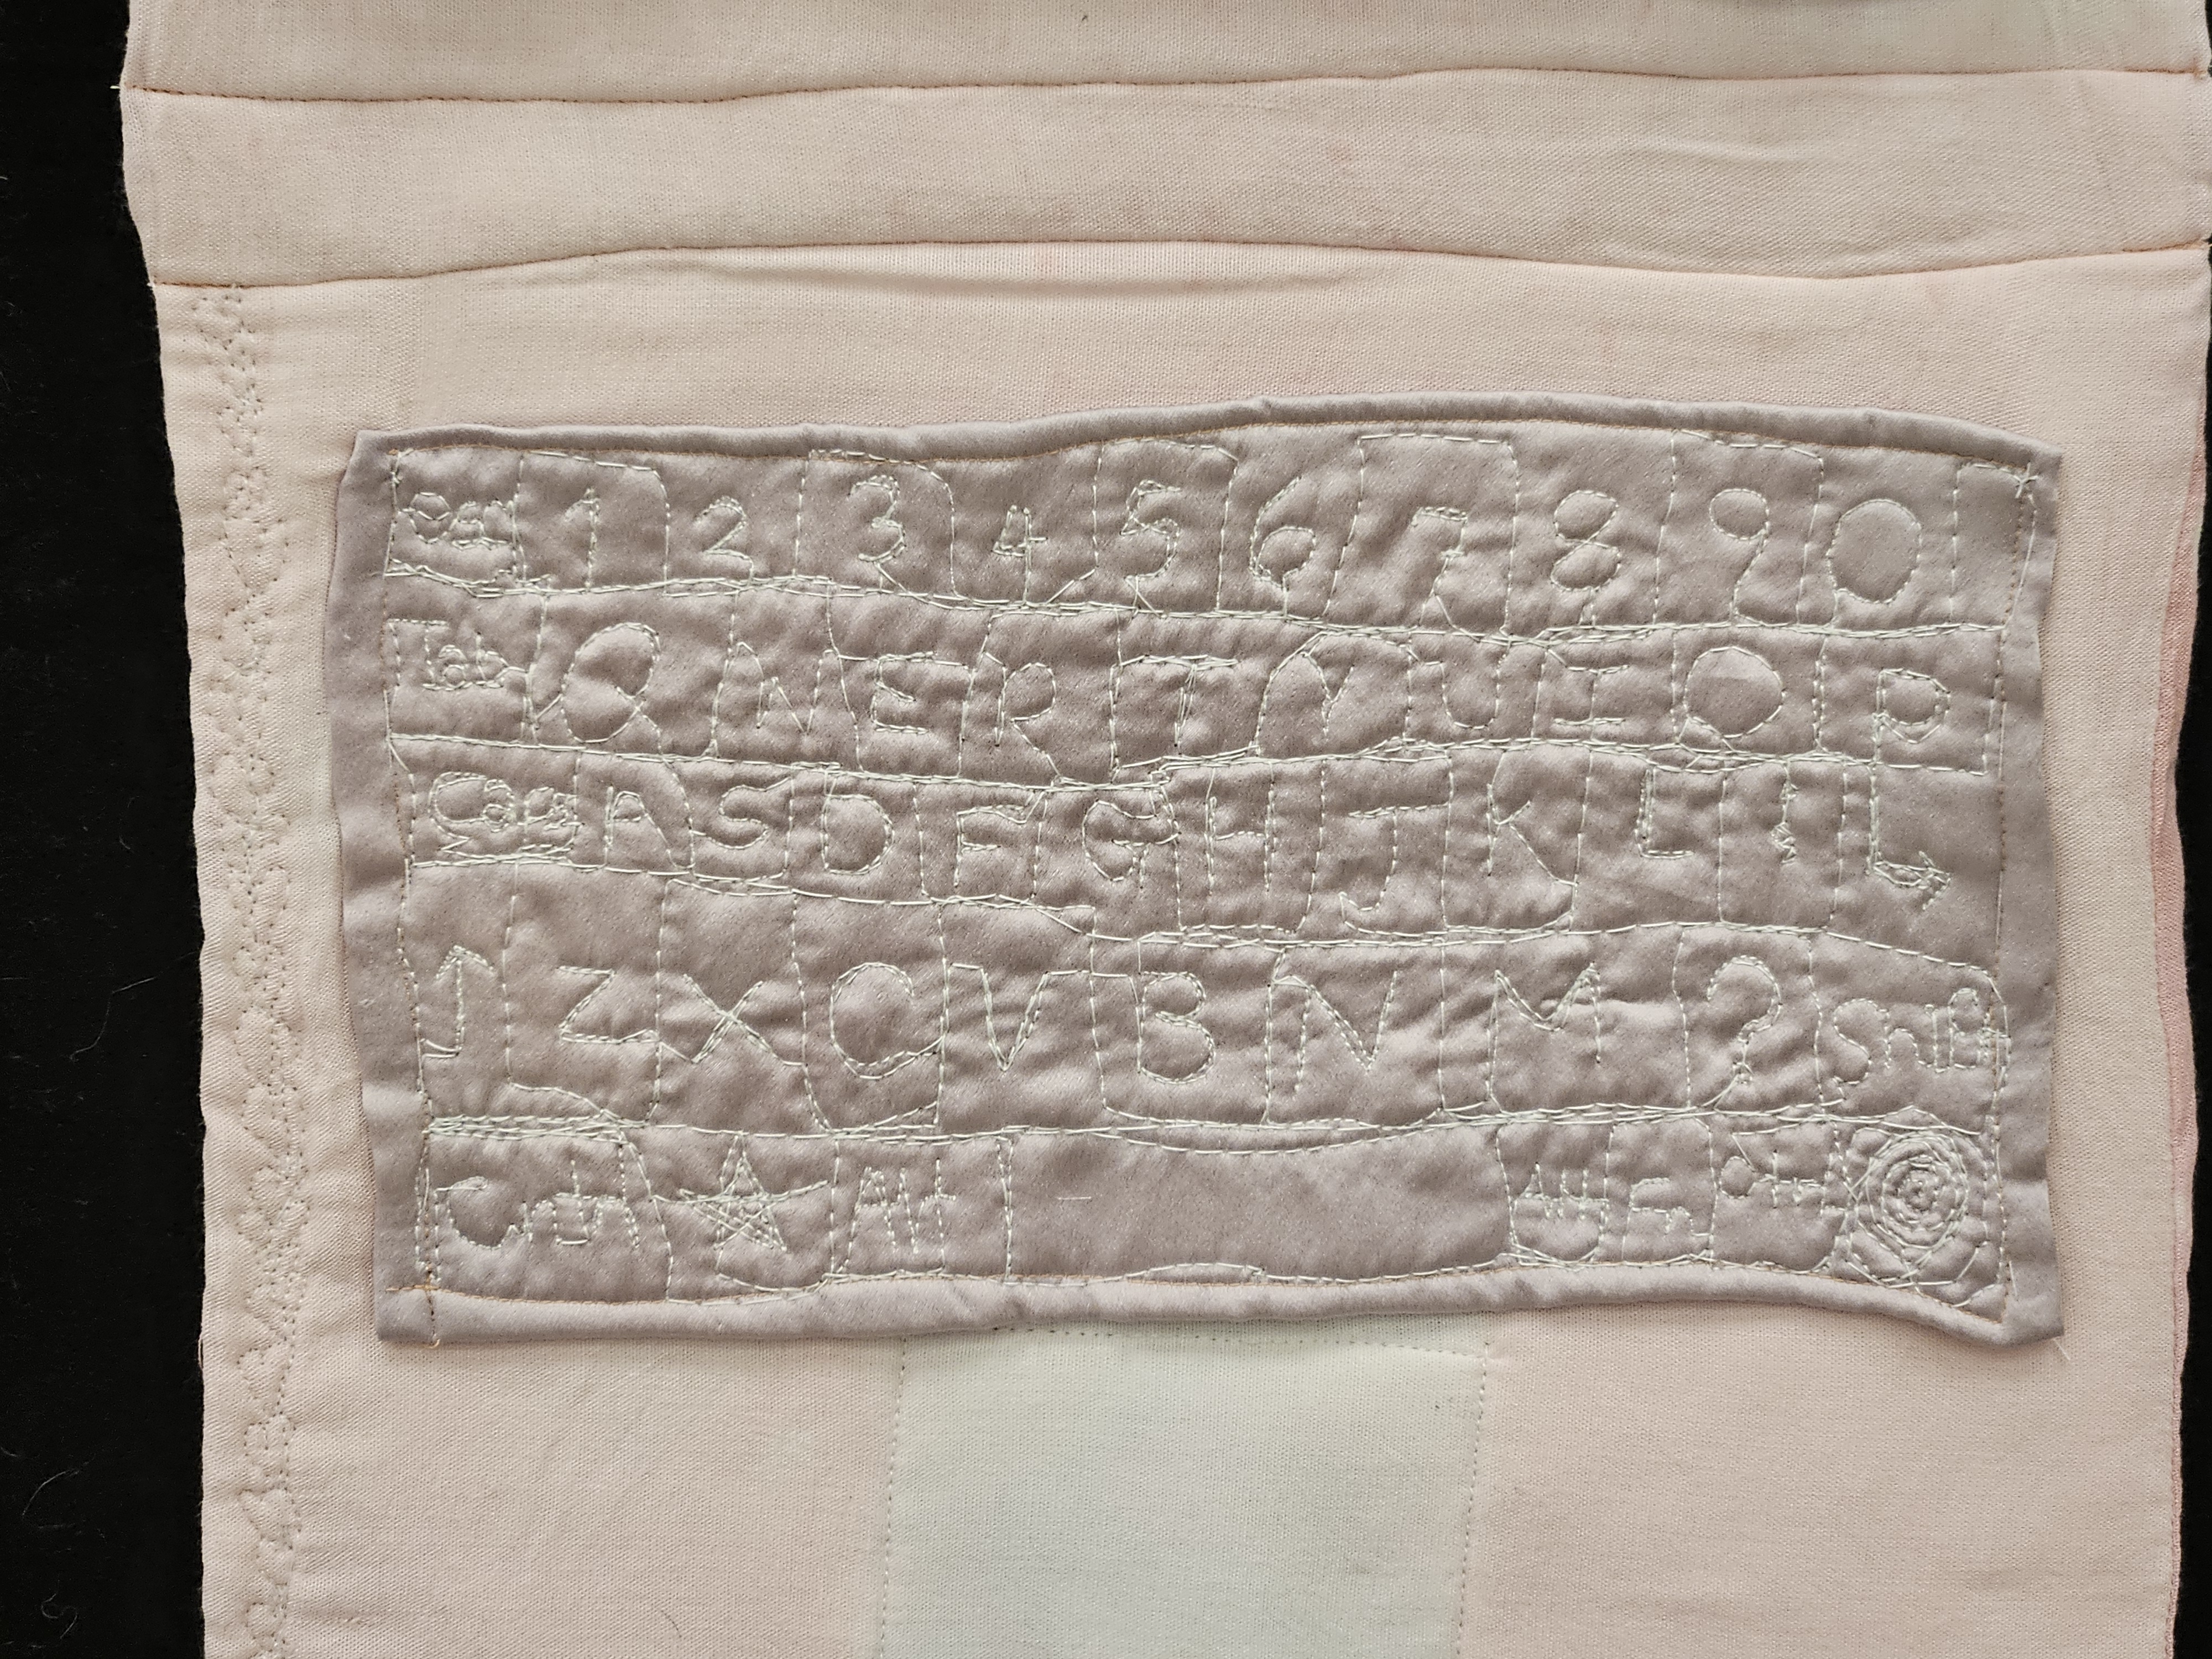 1 2 3 4 5 6 7 8 9 0
Tab Q W E R T Y U I O P
Caps A S D F G H J K L
↑ Z X C V B N M ? Shift
Ctrl Alt Alt Fn Ctrl